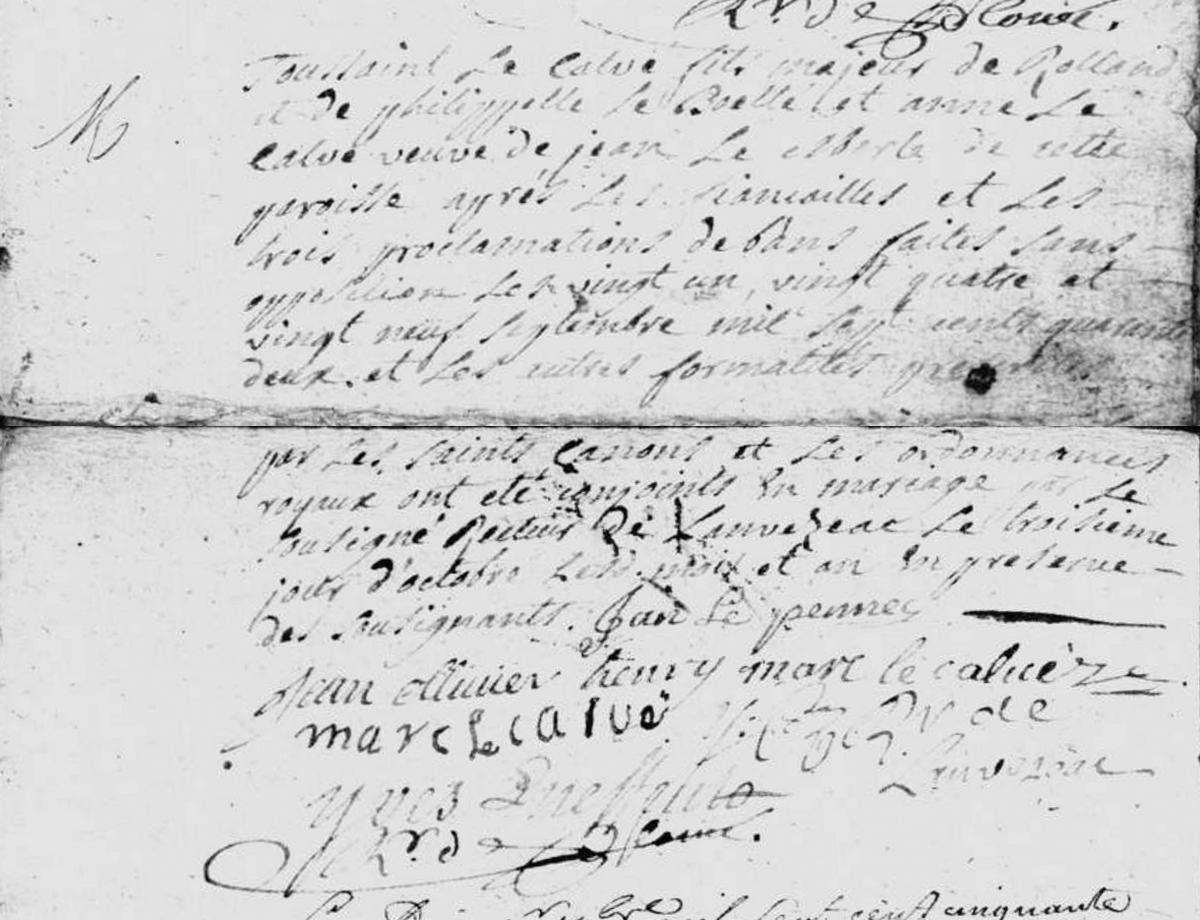 Toussaint Le calvé fils majeur de Rolland
et de philippelle Le Boellé et anne Le
calvé veuve de jean Le de cette
paroisse aprés Les fiancailles et Les
trois proclamations de bans faites sans
opposition Les vingt un, vingt quatre et
vingt neuf septembre mil sept cents quarante
deux. et Les autres formalités
par Les saints canons et Les ordonnances
royaux ont eté conjoints En mariage par Le
sousigné Recteur De Lanvezeac Le troisieme
jour d'octobre mois et an En presence
des sousignants. Jan Le pennec
Jean ollivier henry marc le calvèz
marc Le calvé
Rr de
yves Lanvezeac
Rr de
cent cinquante